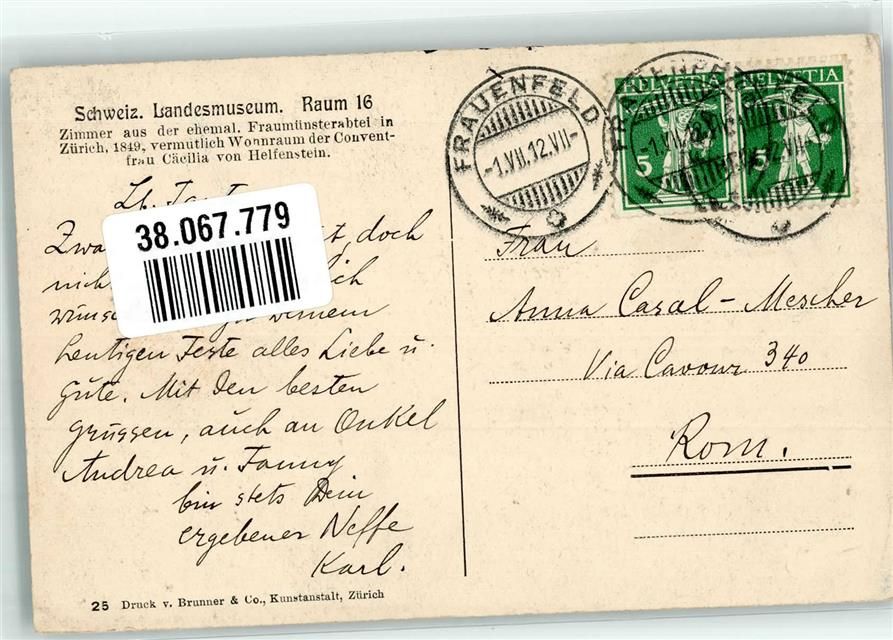 Schweiz. Landesmuseum. Raum 16
Zimmer aus der ehemal. Fraumünsterabtei in
Zürich, 1849, vermutlich Wohnraum der Convent-
frau Cäcilia von Helfenstein.
FRAUENFELD
-1.VII.12.VII-
HELVETIA
5
HELVETIA
5
38.067.779
Lb. Tante
Zwa doch
nich ich
wünsc Deinem
heutigen Feste alles Liebe u.
Gute. Mit den besten
Grüssen, auch an Onkel
Andrea u. Fanny
bin stets Dein
ergebener Neffe
Karl.
Frau
Anna Casal-Mescher
Via Cavour 340
Rom.
25 Druck v. Brunner & Co., Kunstanstalt, Zürich